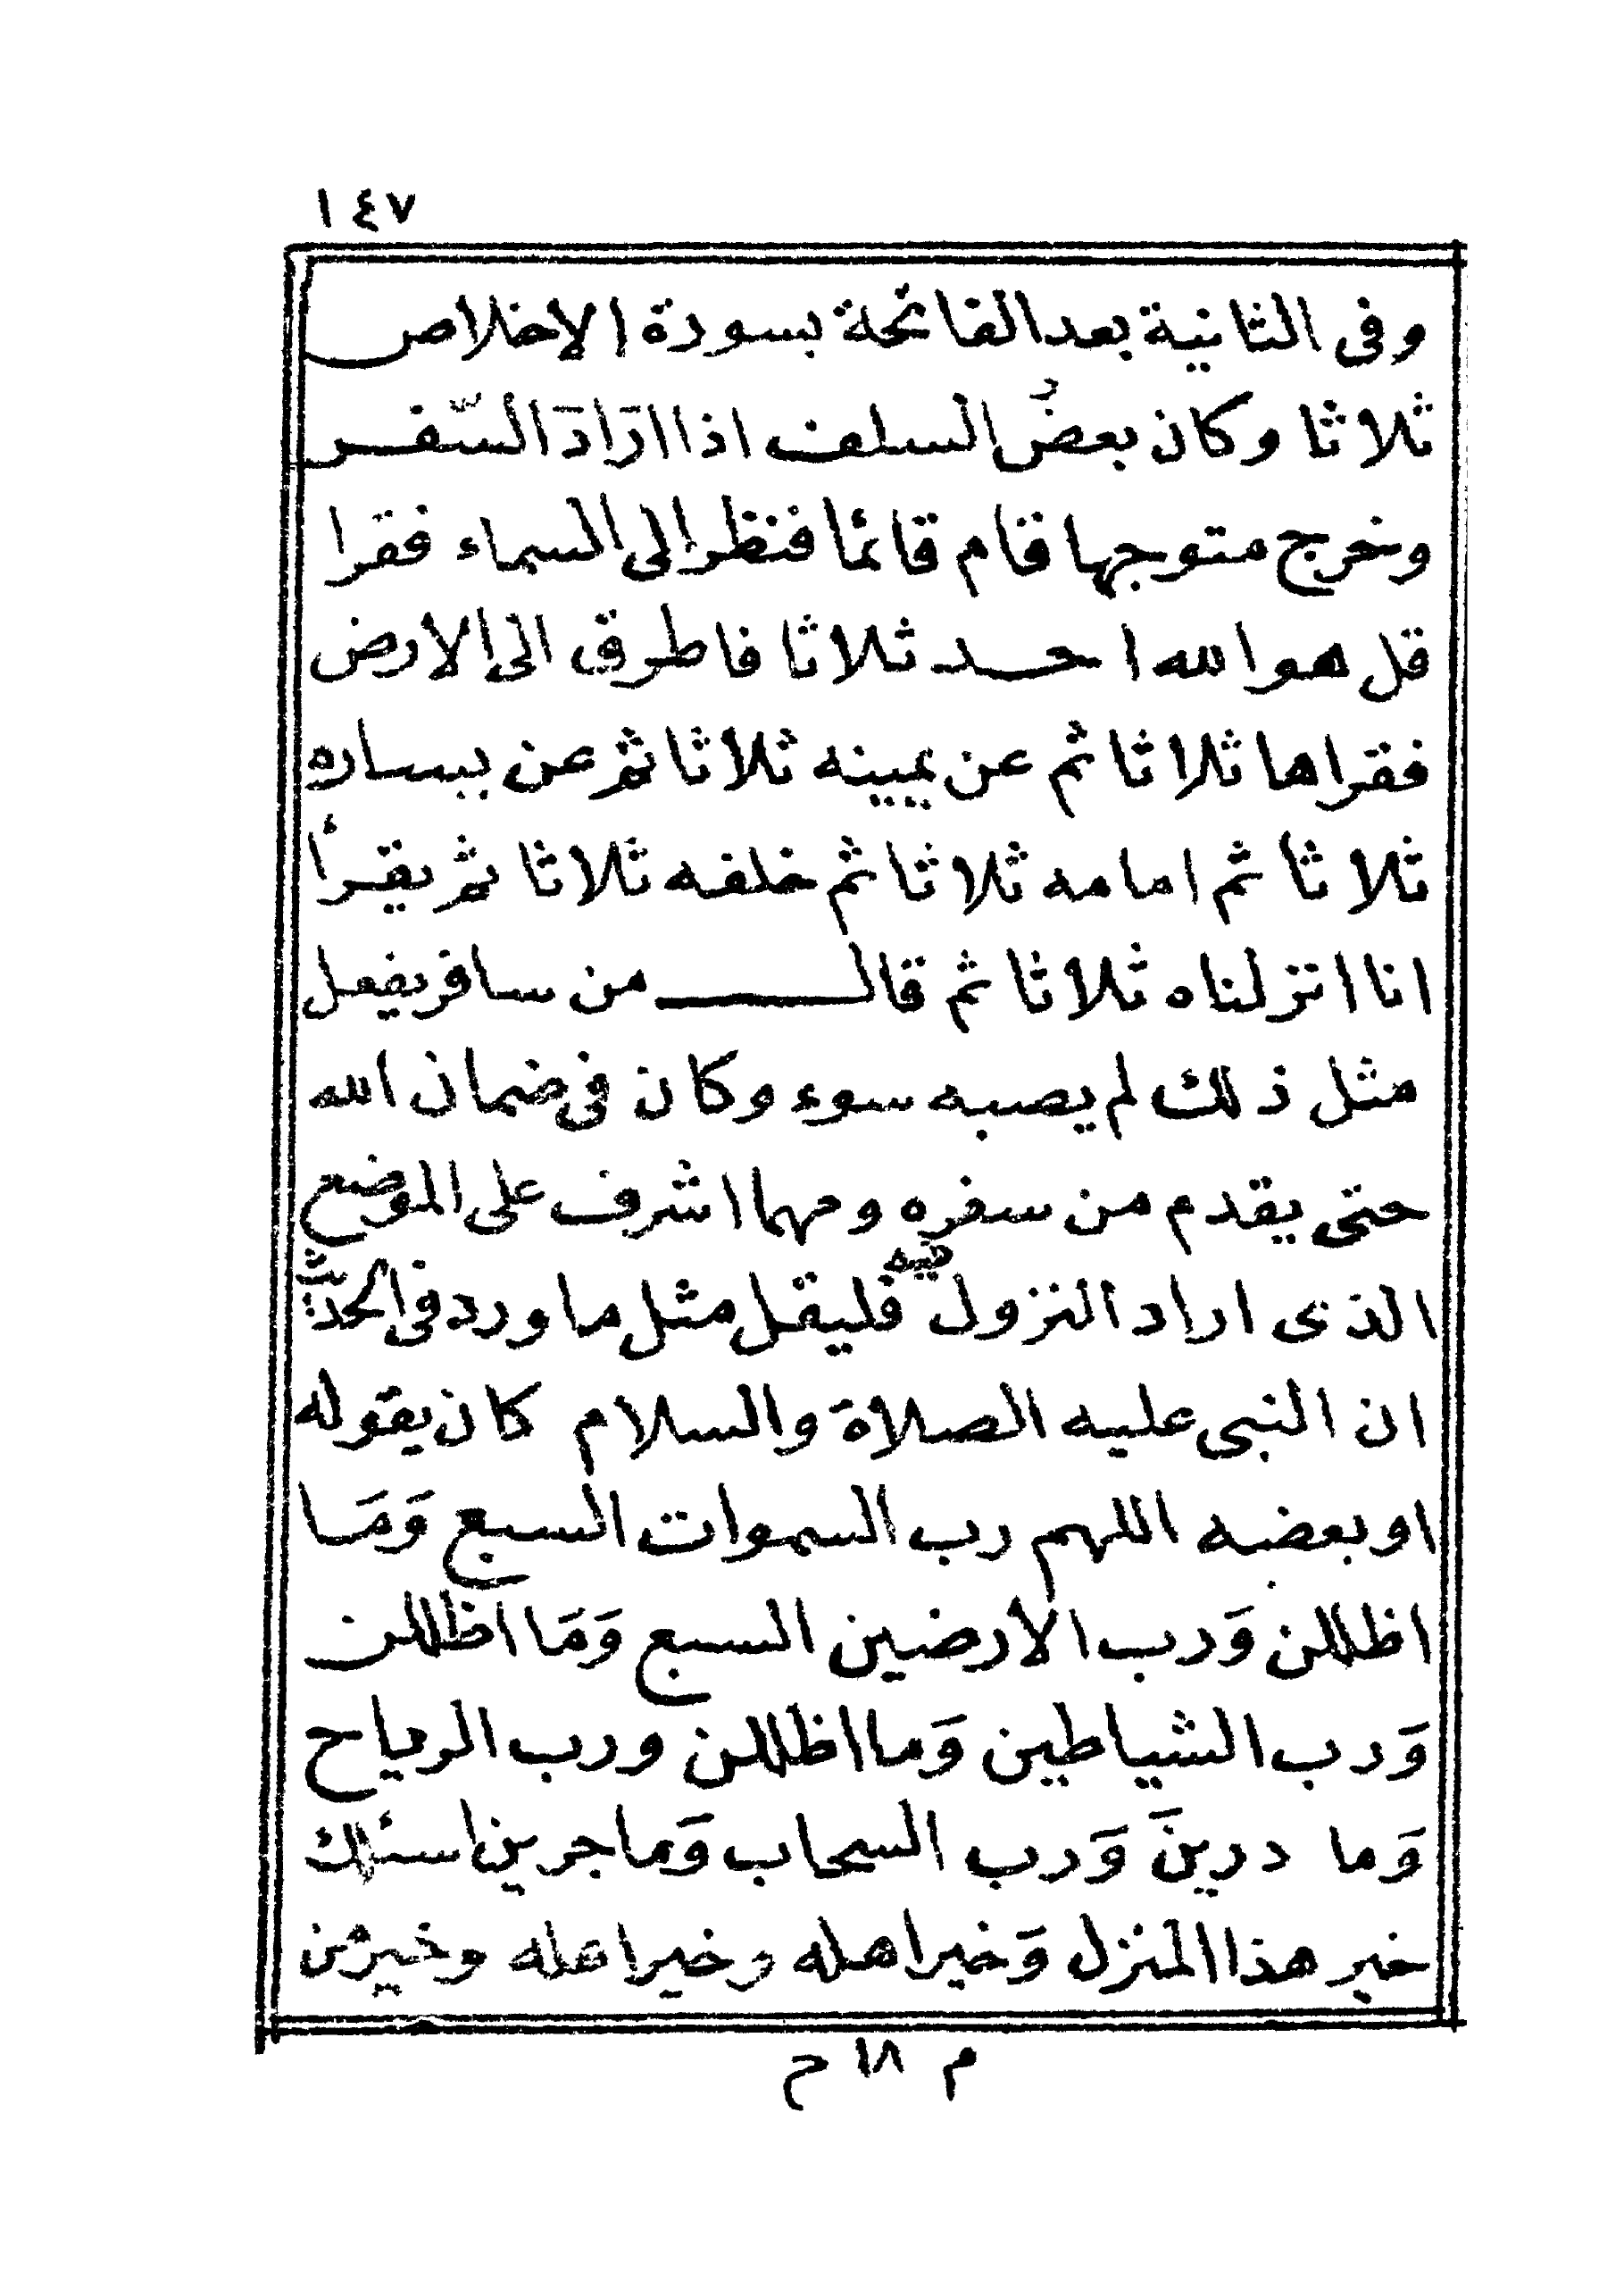 ١٤٧
وفى الثانية بعد الفاتحة بسورة الإخلاص
ثلاثا وكان بعضُ السلف اذا ارَادَ السّفر
وخرج متوجها قام قائما فنظر الى السماء فقرا
قل هو الله احد ثلاثا فاطرق الى الارض
فقراها ثلاثا ثم عن يمينه ثلاثا ثم عن يساره
ثلاثا ثم امامه ثلاثا ثم خلفه ثلاثا ثم يقرأ
انا انزلناه ثلاثا ثم قال من سافر يفعل
مثل ذلك لم يصبه سوء وكان فى ضمان الله
حتى يقدم من سفره ومهما اشرف على الموضع
الذى اراد النزول فيه فليقل مثل ما ورد فى الحديث
ان النبى عليه الصلاة والسلام كان يقوله
او بعضه اللهم رب السموات السبع وَمَا
اظللن وَرب الأرضين السبع وَمَا اظللن
وَرب الشياطين وَما اظللن ورب الرياح
وَما درينَ وَرب السحاب وَما جرين اسئلك
خير هذا المنزل وَخير اهله وخير اهله وخير من
م ١٨ ح